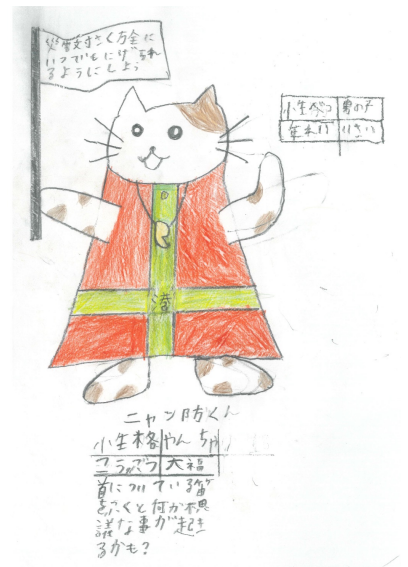 災害対さく万全に
いつでもにげられ
るようにしよう
性べつ 男の子
年れい 11さい
港
ニャン防くん
性格 やんちゃ
こうぶつ 大福
首についている笛
をふくと何か不思
議な事が起き
るかも？